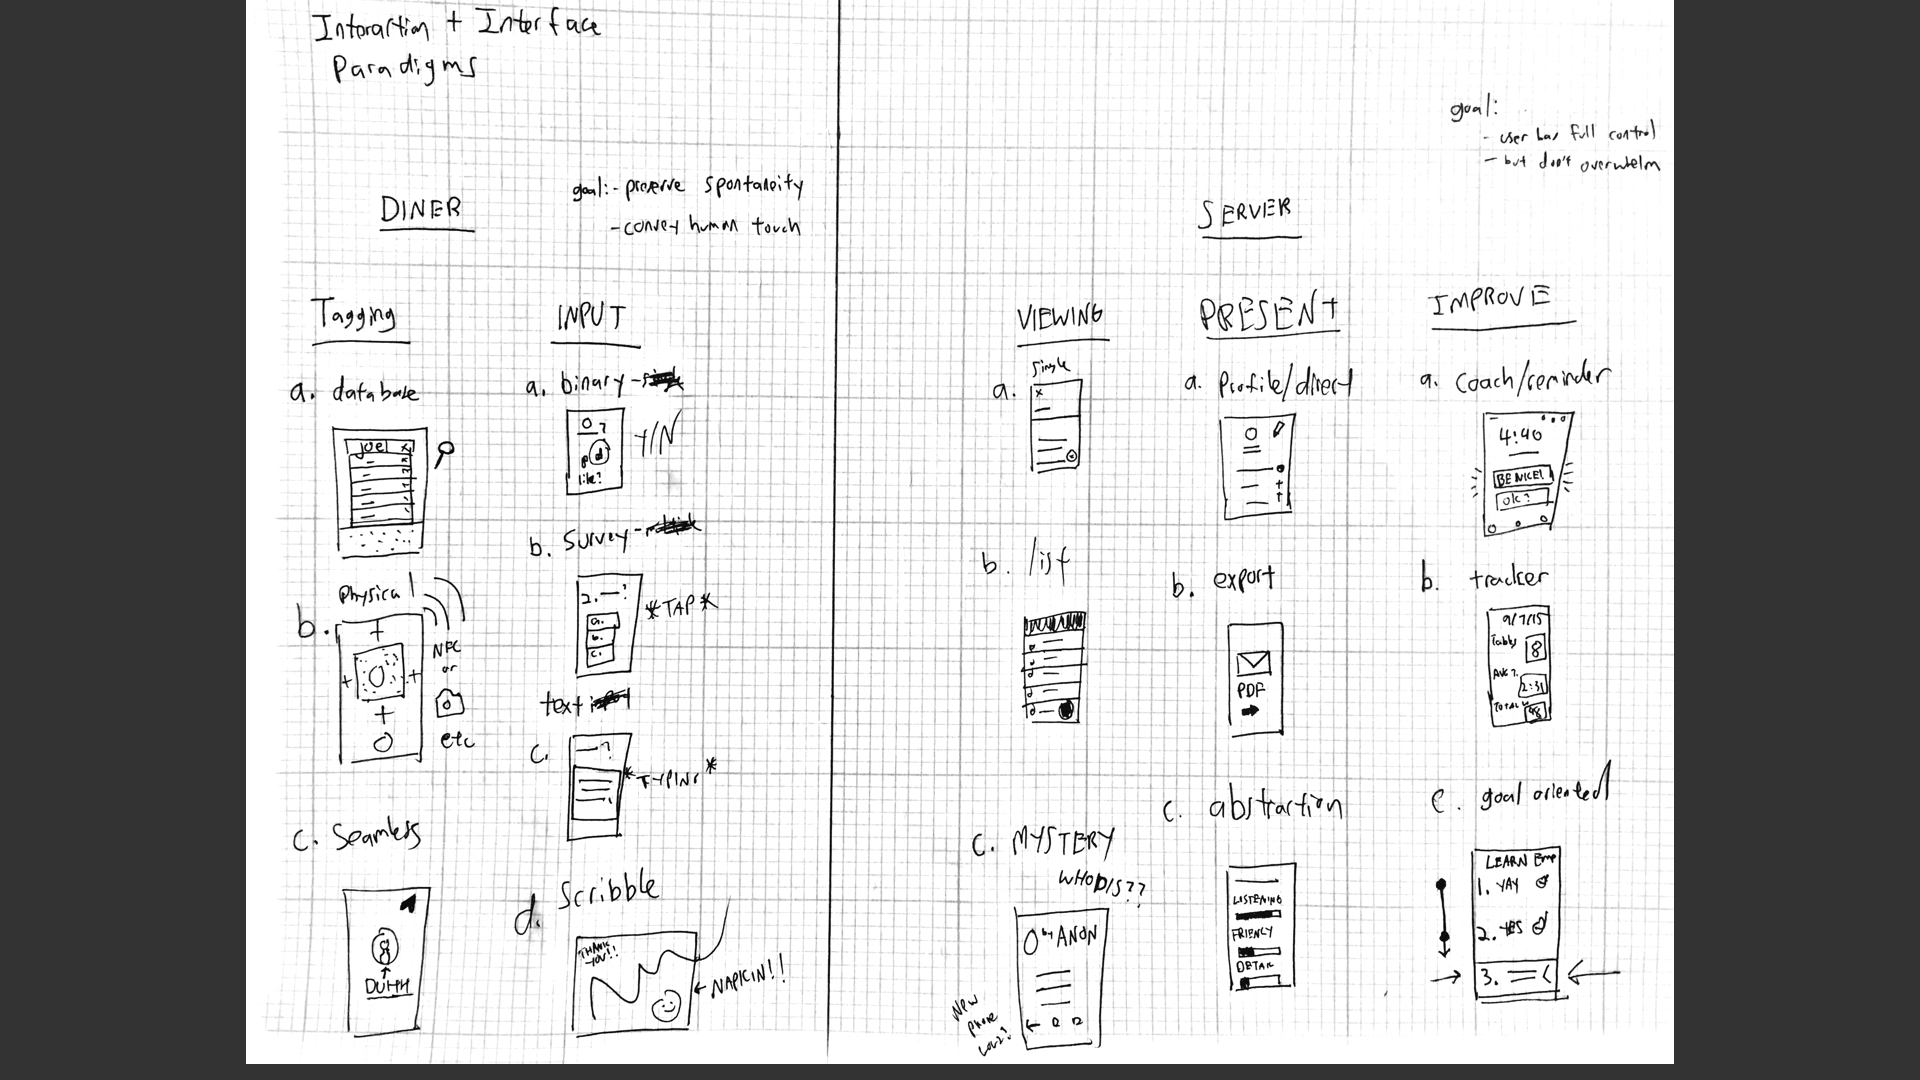 Interaction + Interface
Paradigms
DINER
goal: - preserve spontaneity
- convey human touch
Tagging
a. database
joel
b. physical
NFC
or
etc
c. Seamless
INPUT
a. binary -
?
like?
Y/N
b. Survey -
2. — ?
a.
b.
c.
*TAP*
text
c.
— ?
*TYPING*
d. Scribble
THANK
YOU!!
← NAPKIN!!
SERVER
goal:
- user has full control
- but don't overwhelm
VIEWING
single
a.
x
b. list
c. MYSTERY
WHODIS??
by ANON
New
phone
PRESENT
a. Profile/direct
b. export
PDF
c. abstraction
LISTENING
FRIENLY
DETAIL
IMPROVE
a. Coach/reminder
4:40
BE NICE!
ok?
b. tracker
9/7/15
8
2:31
48
c. goal oriented
LEARN Emp
1. YAY
2. YES
3.